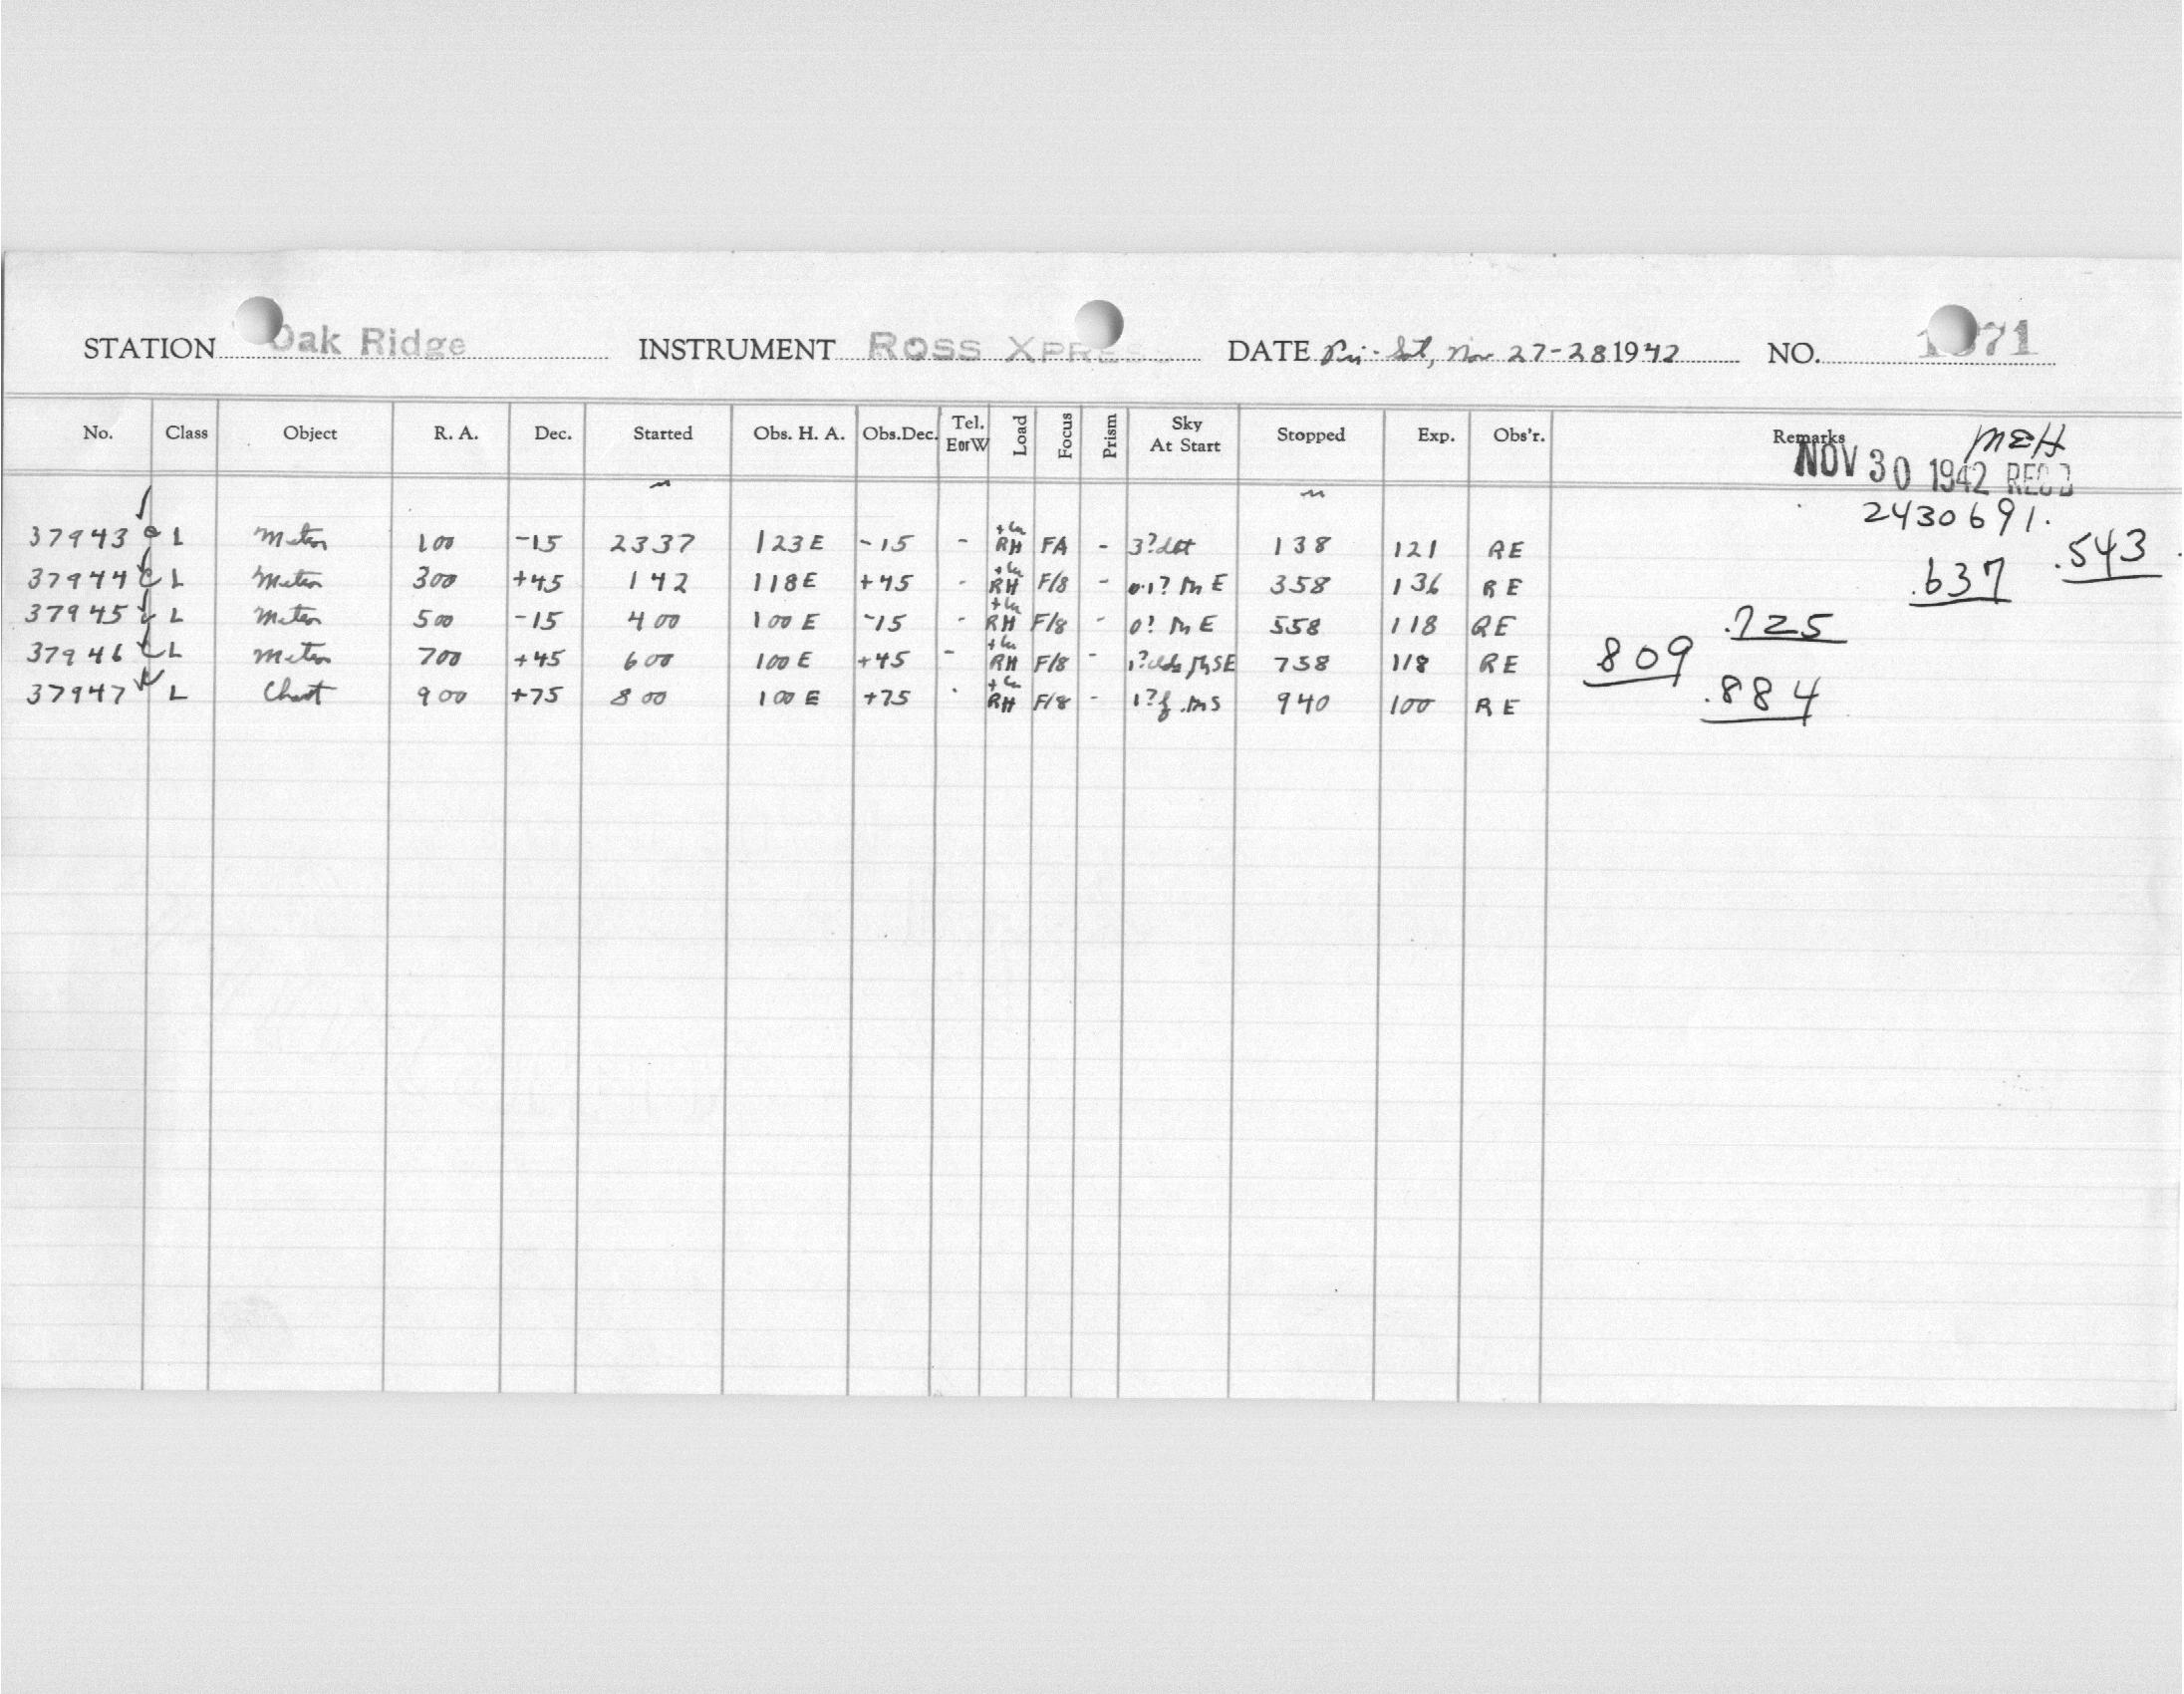 STATION Oak Ridge INSTRUMENT ROSS XPRE DATE Fri-Sat, Nov 27-28 1942 NO. 71
No. Class Object R. A. Dec. Started Obs. H. A. Obs.Dec. Tel. E or W Load Focus Prism Sky At Start Stopped Exp. Obs'r. Remarks
MEH
NOV 30 1942 REC'D
2430691.
37943 L Meteor 100 -15 2337 123E -15 - RH FA - 3? 138 121 RE .543
37944 L Meteor 300 +45 142 118E +45 - RH F/8 - 0.1? M E 358 136 RE .637
37945 L Meteor 500 -15 400 100E -15 - RH F/8 - 0? M E 558 118 RE .725
37946 L Meteor 700 +45 600 100E +45 - RH F/8 - 1? clds SE 758 118 RE 809
37947 L Chart 900 +75 800 100E +75 - RH F/8 - 1? M S 940 100 RE .884